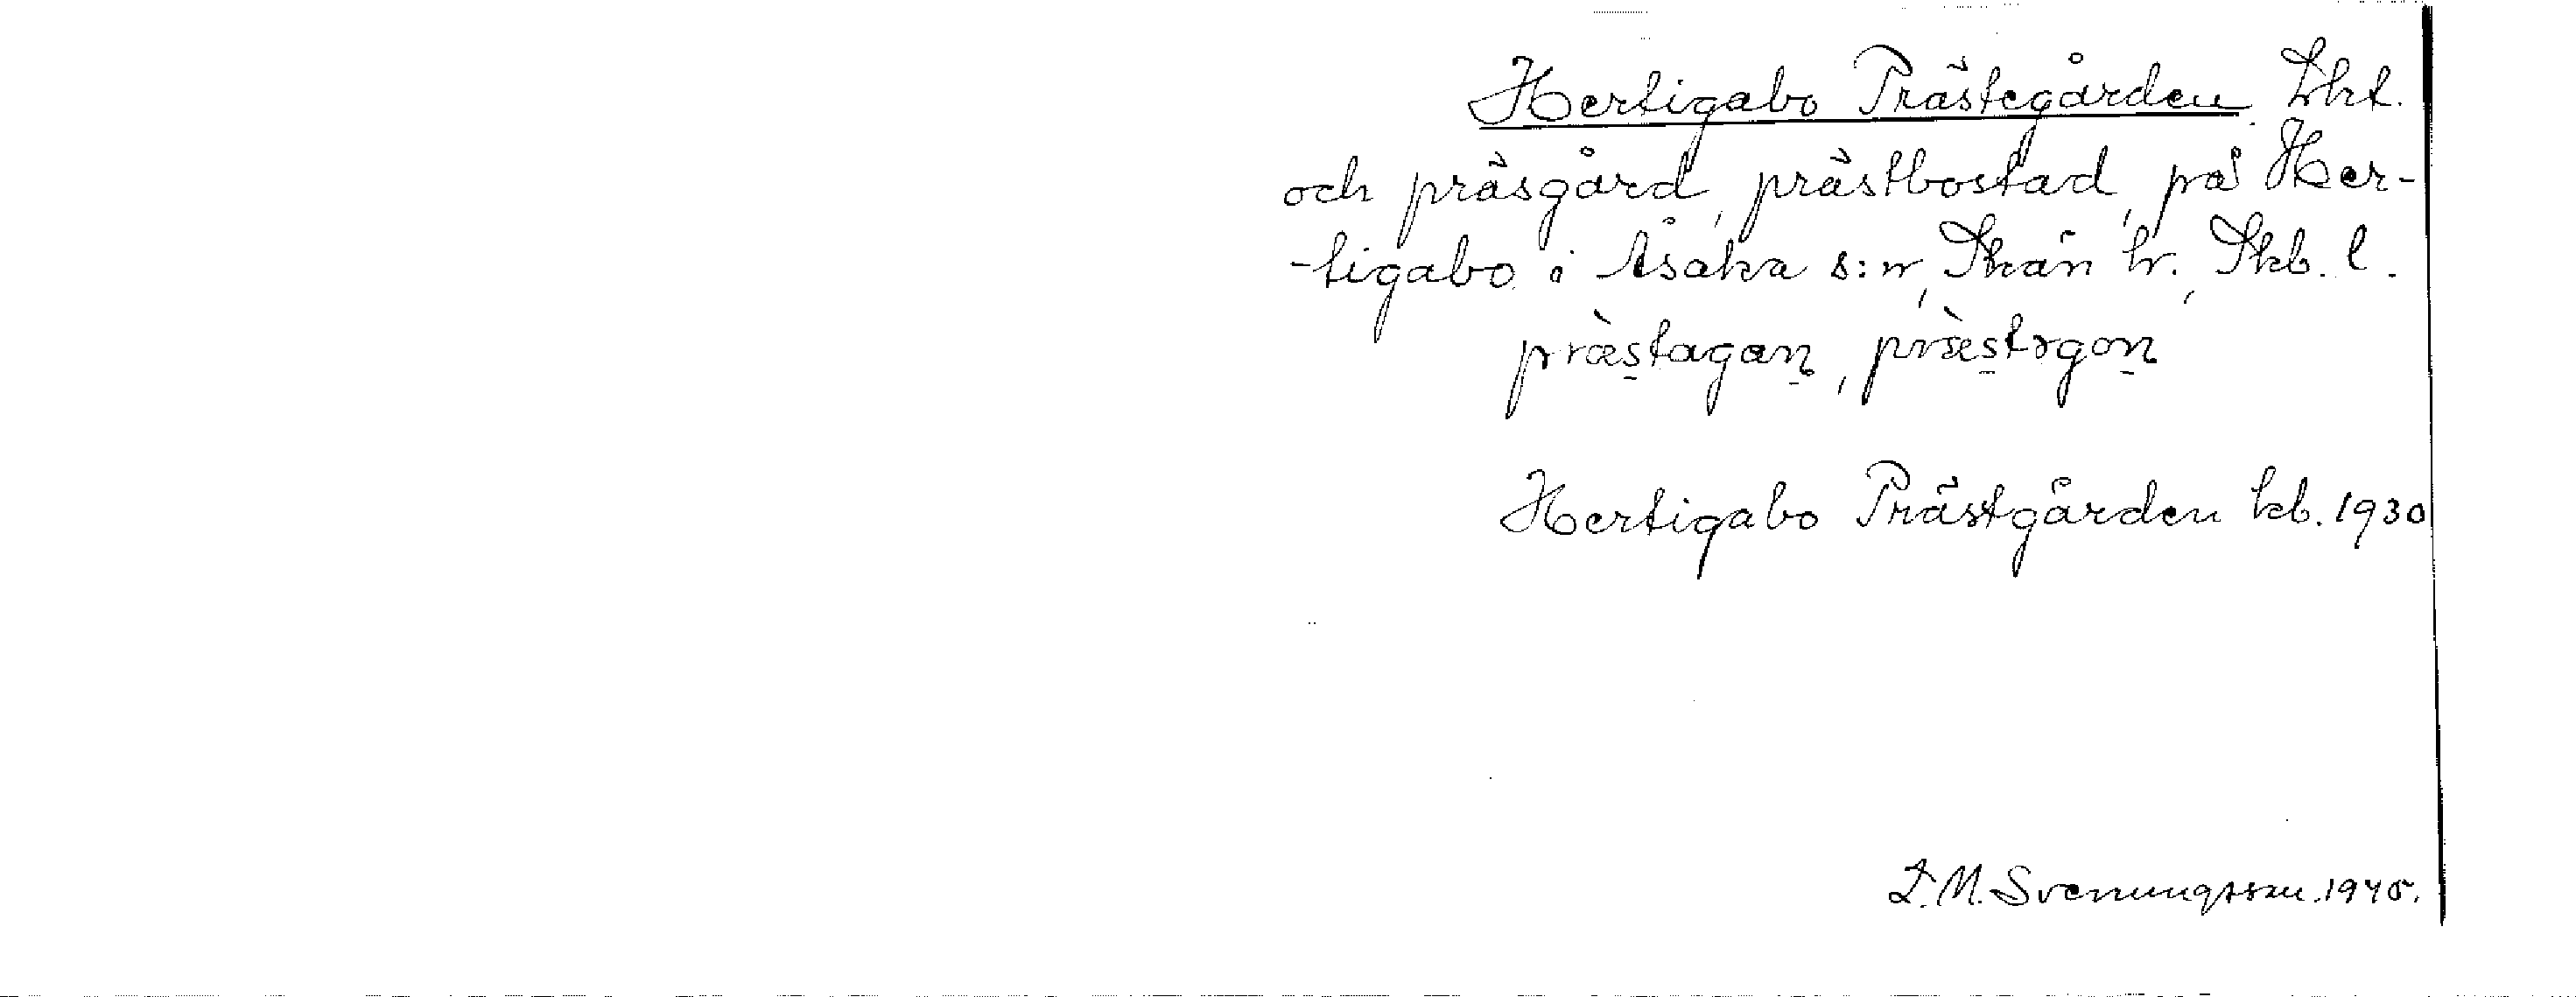 Hertigabo Prästegården. Lht.
och präsgård, prästbostad, på Her-
-tigabo i Åsaka s:n, Skån hr., Skb. l.
præ̀stagan, præ̀stɔgon
Hertigabo Prästgården kb. 1930
L. M. Svenungsson. 1945.